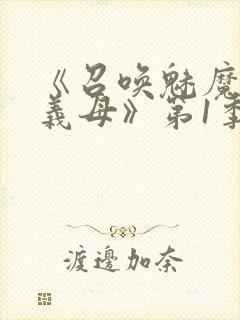 《召唤魅魔
義母》第1季
渡邊加奈